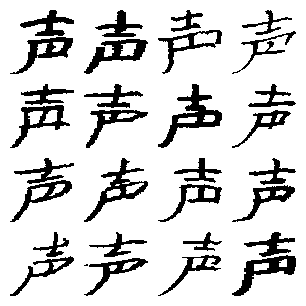 声声声声
声声声声
声声声声
声声声声